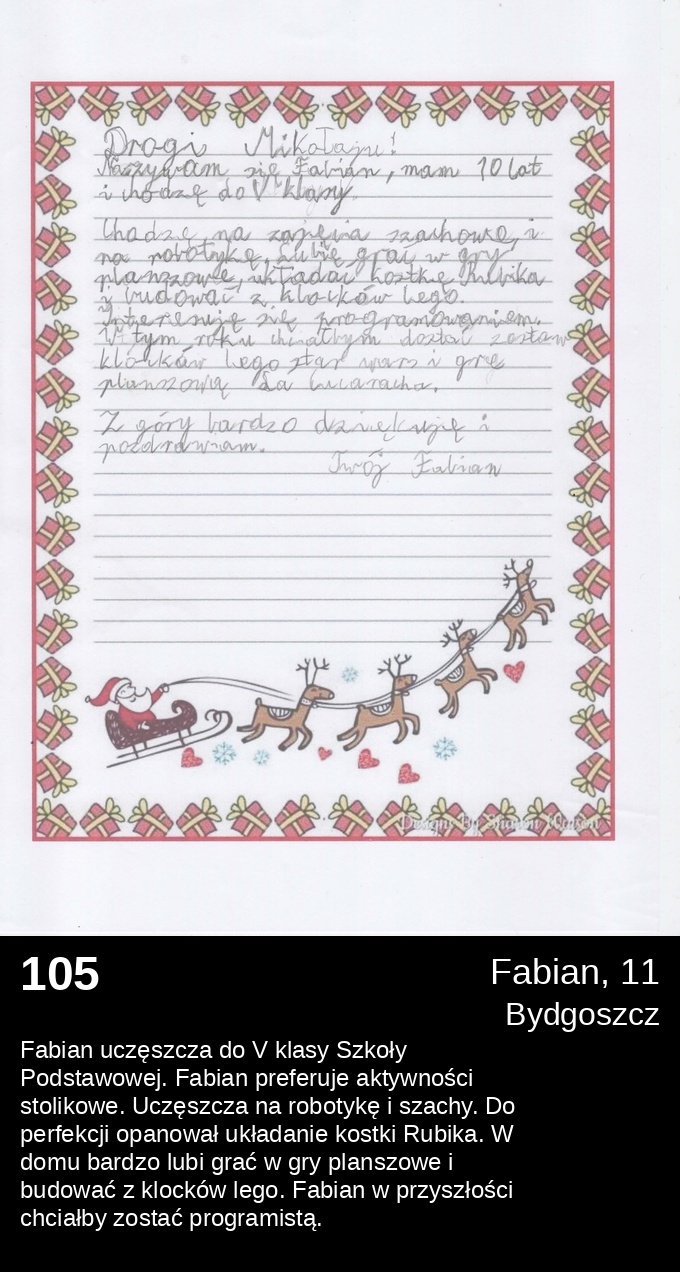 Drogi Mikołaju!
Nazywam się Fabian, mam 10 lat
i chodzę do V klasy.
Chodzę na zajęcia szachowe, i
na robotykę. Lubię grać w gry
planszowe, układać kostkę Rubika
i budować z klocków lego.
Interesuję się programowaniem.
W tym roku chciałbym dostać zestaw
klocków lego star wars i grę
planszową La Cucaracha.
Z góry bardzo dziękuję i
pozdrawiam.
Twój Fabian
Designs By Sharon Watson
105
Fabian, 11
Bydgoszcz
Fabian uczęszcza do V klasy Szkoły
Podstawowej. Fabian preferuje aktywności
stolikowe. Uczęszcza na robotykę i szachy. Do
perfekcji opanował układanie kostki Rubika. W
domu bardzo lubi grać w gry planszowe i
budować z klocków lego. Fabian w przyszłości
chciałby zostać programistą.